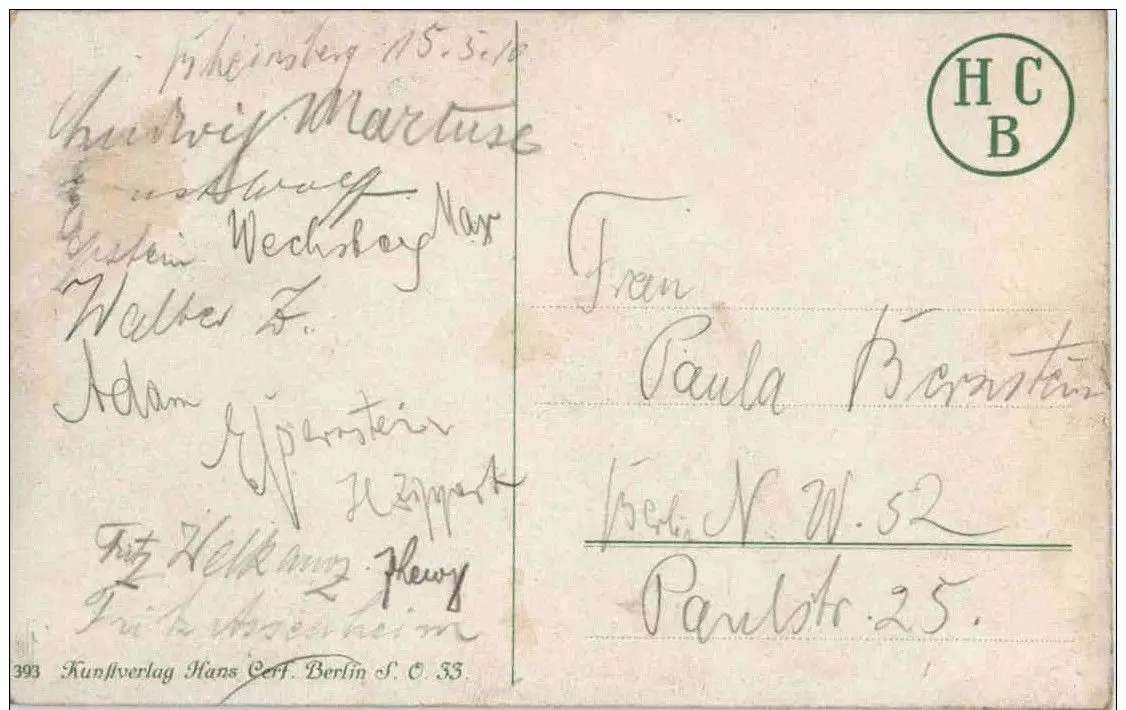 Rheinsberg 15.5.10
Ludwig Martuse
Ernst Wolff
Epstein Wechsberg Max
Walter Z.
Adam
Bernstein
H Zippert
Fritz Welkanoz
Fritz Assenheim
393 Kunstverlag Hans Cerf. Berlin S. O. 33.
H C
B
Frau
Paula Bernstein
Berlin N. W. 52
Paulstr. 25.